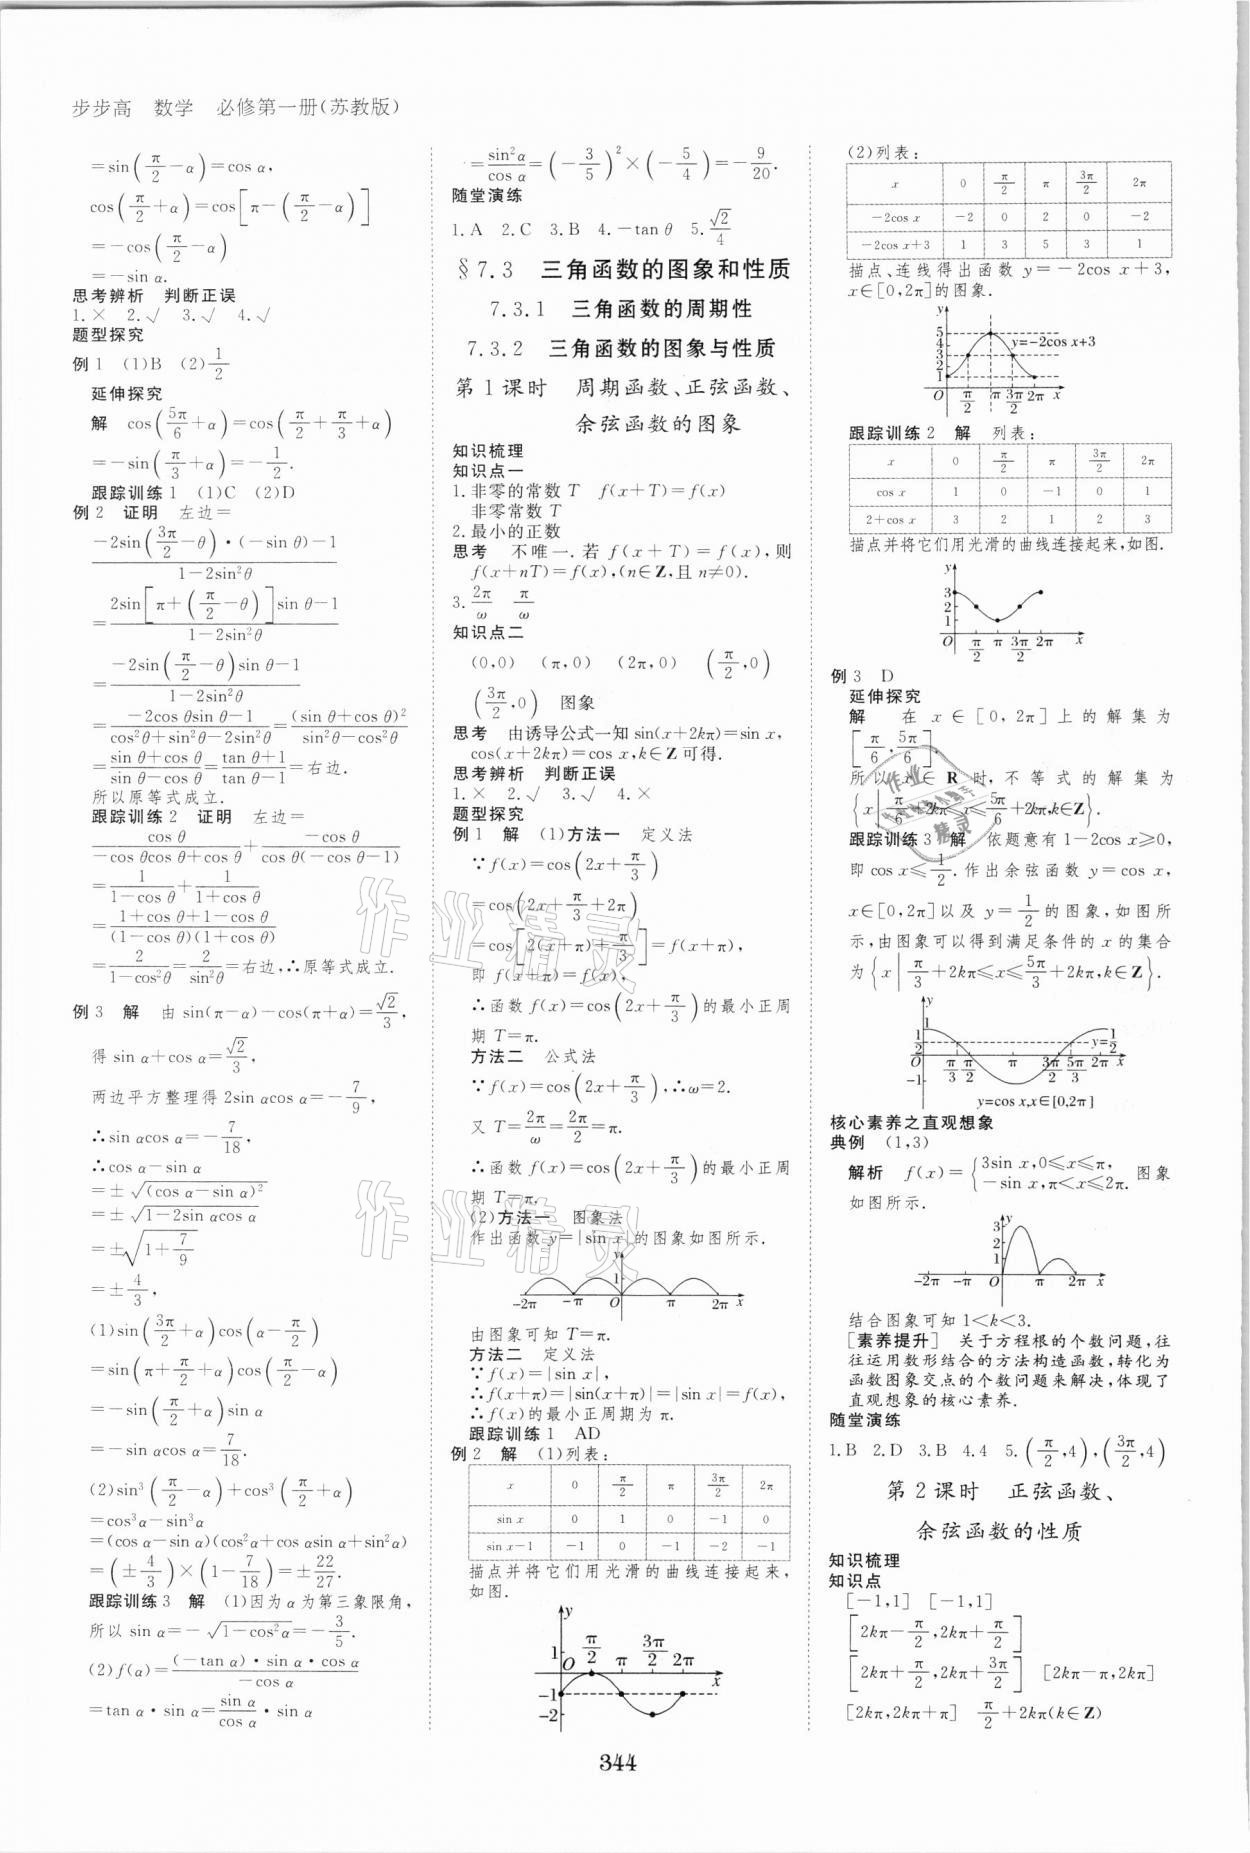 步步高 数学 必修第一册(苏教版)
=sin(π/2-α)=cos α,
cos(π/2+α)=cos[π-(π/2-α)]
=-cos(π/2-α)
=-sin α.
思考辨析 判断正误
1.× 2.√ 3.√ 4.√
题型探究
例1 (1)B (2)1/2
延伸探究
解 cos(5π/6+α)=cos(π/2+π/3+α)
=-sin(π/3+α)=-1/2.
跟踪训练1 (1)C (2)D
例2 证明 左边=
[-2sin(3π/2-θ)·(-sin θ)-1]/(1-2sin²θ)
={2sin[π+(π/2-θ)]sin θ-1}/(1-2sin²θ)
=[-2sin(π/2-θ)sin θ-1]/(1-2sin²θ)
=(-2cos θsin θ-1)/(cos²θ+sin²θ-2sin²θ)=(sin θ+cos θ)²/(sin²θ-cos²θ)
=(sin θ+cos θ)/(sin θ-cos θ)=(tan θ+1)/(tan θ-1)=右边.
所以原等式成立.
跟踪训练2 证明 左边=
cos θ/(-cos θcos θ+cos θ)+(-cos θ)/[cos θ(-cos θ-1)]
=1/(1-cos θ)+1/(1+cos θ)
=(1+cos θ+1-cos θ)/[(1-cos θ)(1+cos θ)]
=2/(1-cos²θ)=2/sin²θ=右边,∴原等式成立.
例3 解 由 sin(π-α)-cos(π+α)=√2/3,
得 sin α+cos α=√2/3,
两边平方整理得 2sin αcos α=-7/9,
∴sin αcos α=-7/18,
∴cos α-sin α
=±√(cos α-sin α)²
=±√(1-2sin αcos α)
=±√(1+7/9)
=±4/3,
(1)sin(3π/2+α)cos(α-π/2)
=sin(π+π/2+α)cos(π/2-α)
=-sin(π/2+α)sin α
=-sin αcos α=7/18.
(2)sin³(π/2-α)+cos³(π/2+α)
=cos³α-sin³α
=(cos α-sin α)(cos²α+cos αsin α+sin²α)
=(±4/3)×(1-7/18)=±22/27.
跟踪训练3 解 (1)因为α为第三象限角,
所以 sin α=-√(1-cos²α)=-3/5.
(2)f(α)=(-tan α)·sin α·cos α/(-cos α)
=tan α·sin α=sin α/cos α·sin α
=sin²α/cos α=(-3/5)²×(-5/4)=-9/20.
随堂演练
1.A 2.C 3.B 4.-tan θ 5.√2/4
§7.3 三角函数的图象和性质
7.3.1 三角函数的周期性
7.3.2 三角函数的图象与性质
第1课时 周期函数、正弦函数、
余弦函数的图象
知识梳理
知识点一
1.非零的常数 T f(x+T)=f(x)
非零常数 T
2.最小的正数
思考 不唯一.若 f(x+T)=f(x),则
f(x+nT)=f(x),(n∈Z,且 n≠0).
3.2π/ω π/ω
知识点二
(0,0) (π,0) (2π,0) (π/2,0)
(3π/2,0) 图象
思考 由诱导公式一知 sin(x+2kπ)=sin x,
cos(x+2kπ)=cos x,k∈Z可得.
思考辨析 判断正误
1.× 2.√ 3.√ 4.×
题型探究
例1 解 (1)方法一 定义法
∵f(x)=cos(2x+π/3)
=cos(2x+π/3+2π)
=cos[2(x+π)+π/3]=f(x+π),
即 f(x+π)=f(x),
∴函数 f(x)=cos(2x+π/3)的最小正周
期 T=π.
方法二 公式法
∵f(x)=cos(2x+π/3),∴ω=2.
又 T=2π/ω=2π/2=π.
∴函数 f(x)=cos(2x+π/3)的最小正周
期 T=π.
(2)方法一 图象法
作出函数 y=|sin x|的图象如图所示.
y 1 -2π -π O π 2π x
由图象可知 T=π.
方法二 定义法
∵f(x)=|sin x|,
∴f(x+π)=|sin(x+π)|=|sin x|=f(x),
∴f(x)的最小正周期为 π.
跟踪训练1 AD
例2 解 (1)列表:
x 0 π/2 π 3π/2 2π
sin x 0 1 0 -1 0
sin x-1 -1 0 -1 -2 -1
描点并将它们用光滑的曲线连接起来,
如图.
y 1 O π/2 π 3π/2 2π x -1 -2
(2)列表:
x 0 π/2 π 3π/2 2π
-2cos x -2 0 2 0 -2
-2cos x+3 1 3 5 3 1
描点、连线得出函数 y=-2cos x+3,
x∈[0,2π]的图象.
y 5 4 3 2 1 y=-2cos x+3
O π/2 π 3π/2 2π x
跟踪训练2 解 列表:
x 0 π/2 π 3π/2 2π
cos x 1 0 -1 0 1
2+cos x 3 2 1 2 3
描点并将它们用光滑的曲线连接起来,如图.
y 3 2 1 O π/2 π 3π/2 2π x
例3 D
延伸探究
解 在 x∈[0,2π]上的解集为
[π/6,5π/6].
所以 x∈R 时,不等式的解集为
{x|π/6+2kπ≤x≤5π/6+2kπ,k∈Z}.
跟踪训练3 解 依题意有1-2cos x≥0,
即 cos x≤1/2.作出余弦函数 y=cos x,
x∈[0,2π]以及 y=1/2的图象,如图所
示,由图象可以得到满足条件的 x 的集合
为{x|π/3+2kπ≤x≤5π/3+2kπ,k∈Z}.
y 1 1/2 O -1 π/3 π/2 π 3π/2 5π/3 2π x y=1/2
y=cos x,x∈[0,2π]
核心素养之直观想象
典例 (1,3)
解析 f(x)={3sin x,0≤x≤π, -sin x,π<x≤2π. 图象
如图所示.
3 2 1 y -2π -π O π 2π x
结合图象可知 1<k<3.
[素养提升] 关于方程根的个数问题,往
往运用数形结合的方法构造函数,转化为
函数图象交点的个数问题来解决,体现了
直观想象的核心素养.
随堂演练
1.B 2.D 3.B 4.4 5.(π/2,4),(3π/2,4)
第2课时 正弦函数、
余弦函数的性质
知识梳理
知识点
[-1,1] [-1,1]
[2kπ-π/2,2kπ+π/2]
[2kπ+π/2,2kπ+3π/2] [2kπ-π,2kπ]
[2kπ,2kπ+π] π/2+2kπ(k∈Z)
344
作业精灵
作业精灵